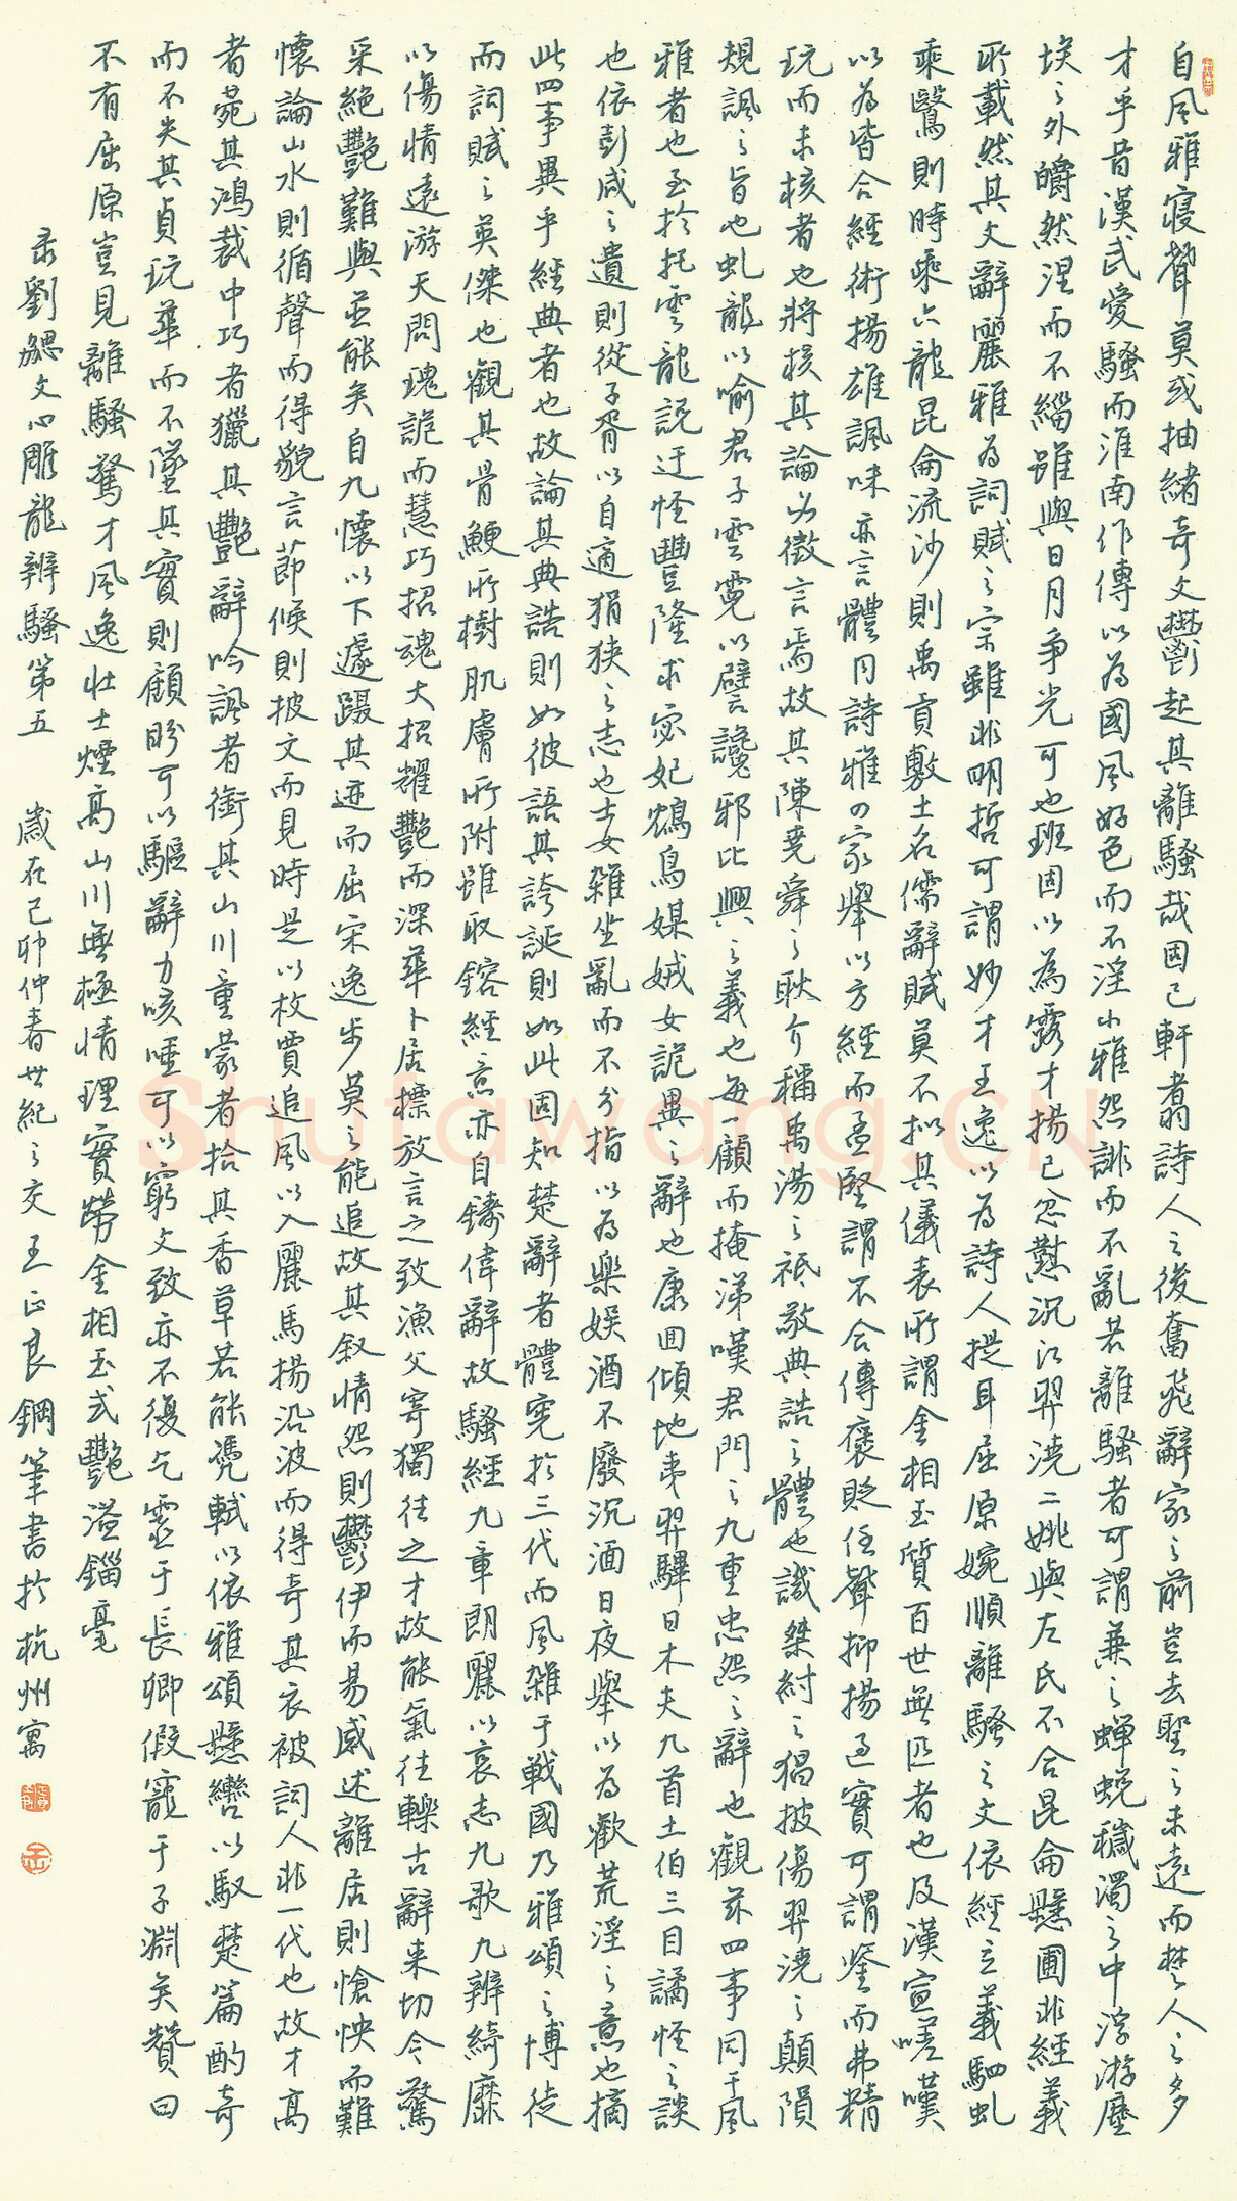 自風雅寢聲莫或抽緒奇文鬱起其離騷哉固已軒翥詩人之後奮飛辭家之前豈去聖之未遠而楚人之多
才乎昔漢武愛騷而淮南作傳以為國風好色而不淫小雅怨誹而不亂若離騷者可謂兼之蟬蛻穢濁之中浮游塵
埃之外皭然涅而不緇雖與日月爭光可也班固以為露才揚己忿懟沉江羿澆二姚與左氏不合昆侖懸圃非經義
所載然其文辭麗雅為詞賦之宗雖非明哲可謂妙才王逸以為詩人提耳屈原婉順離騷之文依經立義駟虬
乘鷖則時乘六龍昆侖流沙則禹貢敷土名儒辭賦莫不拟其儀表所謂金相玉質百世無匹者也及漢宣嗟嘆
以為皆合經術揚雄諷味亦言體同詩雅四家舉以方經而孟堅謂不合傳褒貶任聲抑揚過實可謂鑒而弗精
玩而未核者也將核其論必徵言焉故其陳堯舜之耿介稱禹湯之祗敬典誥之體也譏桀紂之猖披傷羿澆之顛隕
規諷之旨也虬龍以喻君子雲霓以譬讒邪比興之義也每一顧而掩涕嘆君門之九重忠怨之辭也觀茲四事同于風
雅者也至於托雲龍說迂怪豐隆求宓妃鴆鳥媒娀女詭異之辭也康回傾地夷羿彃日木夫九首土伯三目譎怪之談
也依彭咸之遺則從子胥以自適狷狹之志也士女雜坐亂而不分指以為樂娛酒不廢沉湎日夜舉以為歡荒淫之意也摘
此四事異乎經典者也故論其典誥則如彼語其誇誕則如此固知楚辭者體憲於三代而風雜于戰國乃雅頌之博徒
而詞賦之英傑也觀其骨鯁所樹肌膚所附雖取鎔經意亦自鑄偉辭故騷經九章朗麗以哀志九歌九辨綺靡
以傷情遠游天問瑰詭而慧巧招魂大招耀艷而深華卜居標放言之致漁父寄獨往之才故能氣往轢古辭來切今驚
采絕艷難與並能矣自九懷以下遽躡其迹而屈宋逸步莫之能追故其敘情怨則鬱伊而易感述離居則愴怏而難
懷論山水則循聲而得貌言節候則披文而見時是以枚賈追風以入麗馬揚沿波而得奇其衣被詞人非一代也故才高
者菀其鴻裁中巧者獵其艷辭吟諷者銜其山川童蒙者拾其香草若能憑軾以依雅頌懸轡以馭楚篇酌奇
而不失其貞玩華而不墜其實則顧盼可以驅辭力咳唾可以窮文致亦不復乞靈于長卿假寵于子淵矣贊曰
不有屈原豈見離騷驚才風逸壯士煙高山川無極情理實勞金相玉式艷溢錙毫
录劉勰文心雕龍辨騷第五 歲在己卯仲春世紀之交 王正良鋼筆書於杭州寓